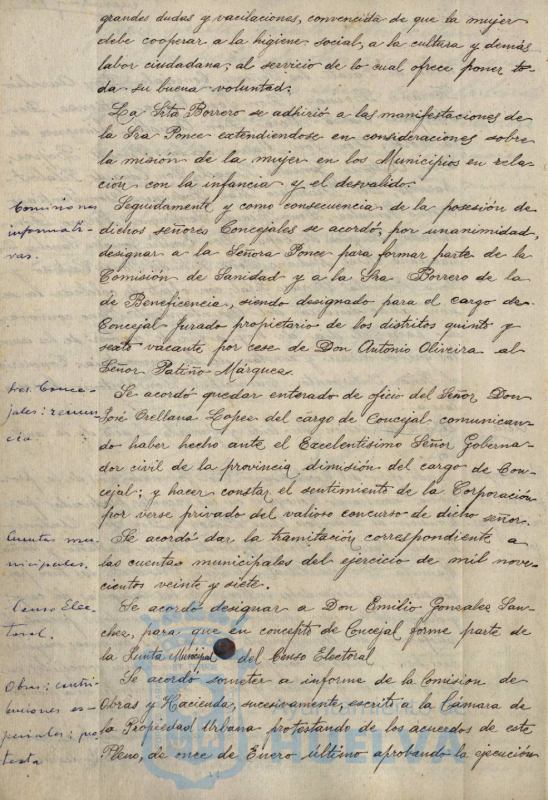 grandes dudas y vacilaciones, convencida de que la mujer
debe cooperar a la higiene social, a la cultura y demás
labor ciudadana, al servicio de lo cual ofrece poner to-
da su buena voluntad.
La Srta Borrero se adhirió a las manifestaciones de
la Sra Ponce extendiendose en consideraciones sobre
la misión de la mujer en los Municipios en rela-
ción con la infancia y el desvalido.
Comisiones
informati-
vas.
Seguidamente y como consecuencia de la posesión de
dichos señores Concejales se acordó, por unanimidad,
designar a la Señora Ponce para formar parte de la
Comisión de Sanidad y a la Sra Borrero de la
de Beneficencia, siendo designado para el cargo de
Concejal Jurado propietario de los distritos quinto y
sexto vacante por cese de Don Antonio Oliveira al
Señor Patiño Márquez.
Sres. Conce-
jales: renun
cia.
Se acordó quedar enterado de oficio del Señor Don
José Orellana Lopez del cargo de Concejal comunican-
do haber hecho ante el Excelentisimo Señor Goberna-
dor civil de la provincia dimisión del cargo de Con-
cejal; y hacer constar el sentimiento de la Corporación
por verse privado del valioso concurso de dicho señor.
Cuentas mu-
nicipales.
Se acordó dar la tramitación correspondiente a
las cuentas municipales del ejercicio de mil nove-
cientos veinte y siete.
Censo Elec-
toral.
Se acordó designar a Don Emilio Gonzalez San-
chez, para que en concepto de Concejal forme parte de
la Junta Municipal del Censo Electoral
Obras: contri-
buciones es-
peciales: pro
testa
Se acordó someter a informe de la Comision de
Obras y Hacienda, sucesivamente, escrito a la Cámara de
la Propiedad Urbana protestando de los acuerdos de este
Pleno, de once de Enero último aprobando la ejecución